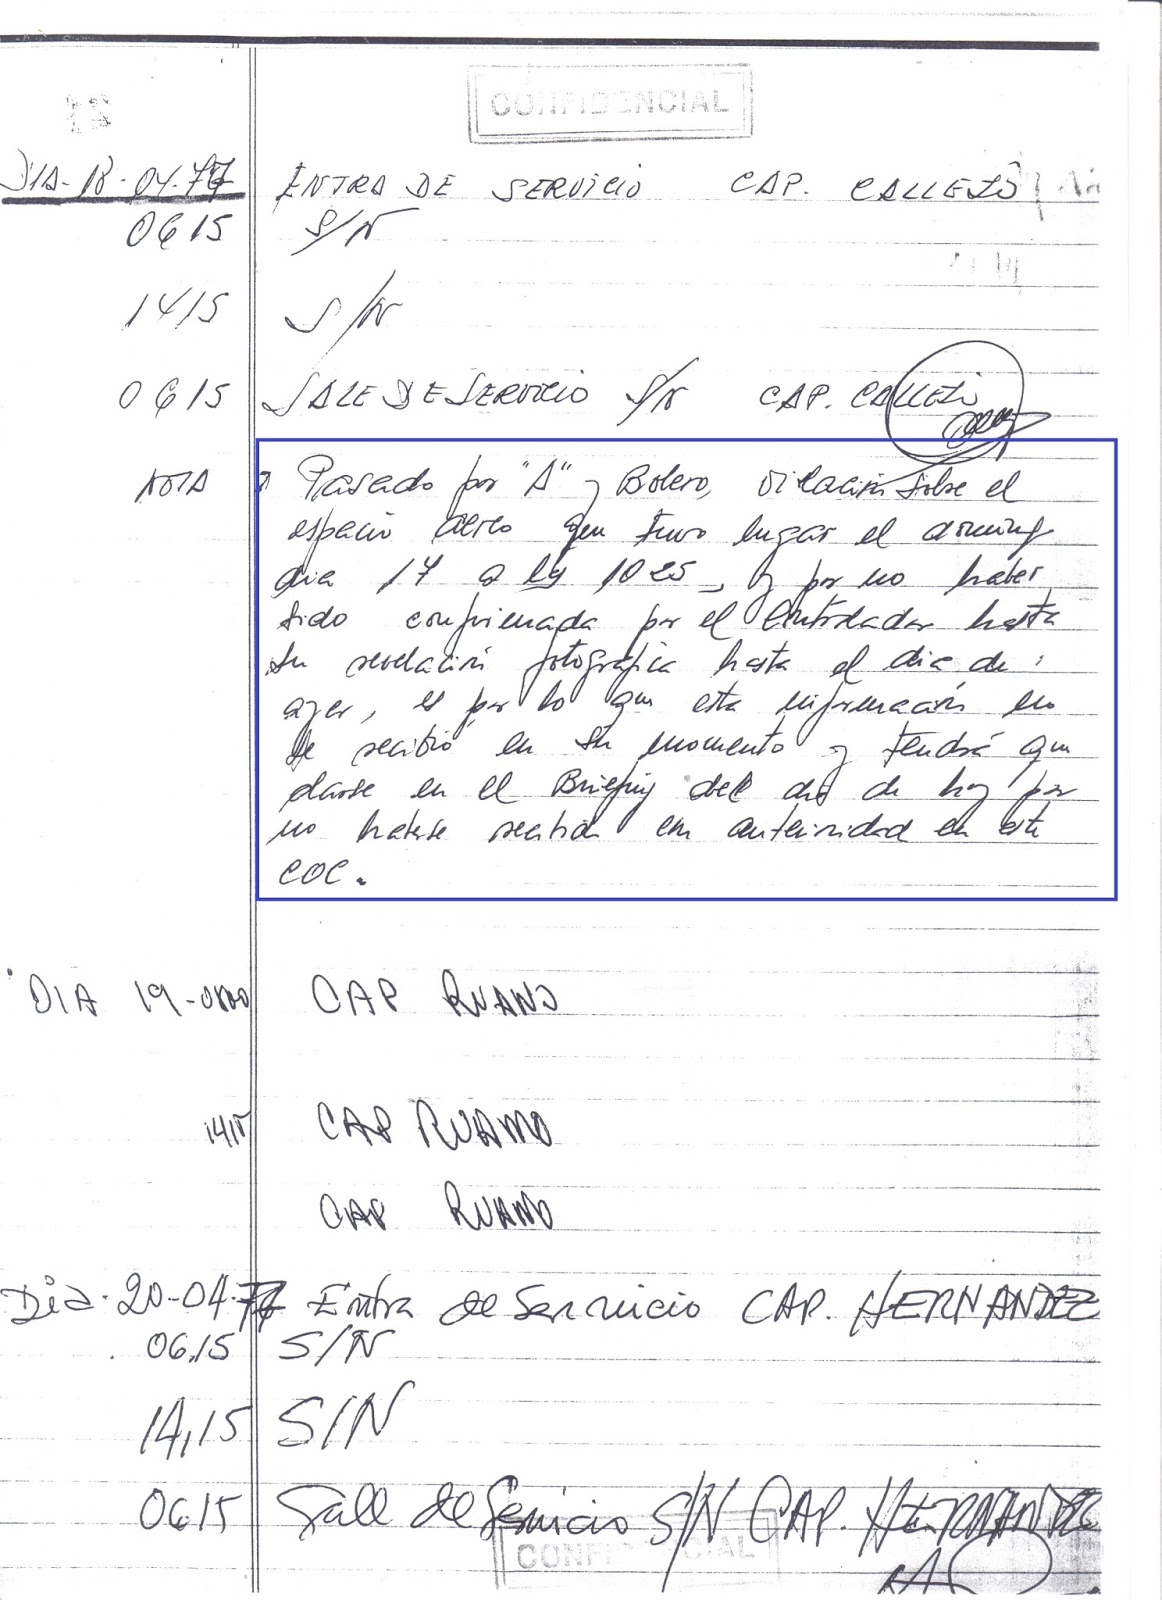 CONFIDENCIAL
DIA-18-04-77 ENTRA DE SERVICIO CAP. CALLEJO
0615 S/N
1415 S/N
0615 SALE DE SERVICIO S/N CAP. CALLEJO
NOTA Pasado por "A" y Bolero, violación sobre el
espacio aereo que tuvo lugar el domingo
dia 17 a las 1025, y por no haber
sido confirmada por el Controlador hasta
su revelación fotográfica hasta el dia de
ayer, es por lo que esta información no
se recibió en su momento y tendrá que
darse en el Briefing del dia de hoy por
no haberse recibido con anterioridad en este
COC.
DIA 19-0800 CAP RUANO
1415 CAP RUANO
CAP RUANO
Dia-20-04-77 Entra de Servicio CAP. HERNANDEZ
06,15 S/N
14,15 S/N
0615 Sale de Servicio S/N CAP. HERNANDEZ
CONFIDENCIAL